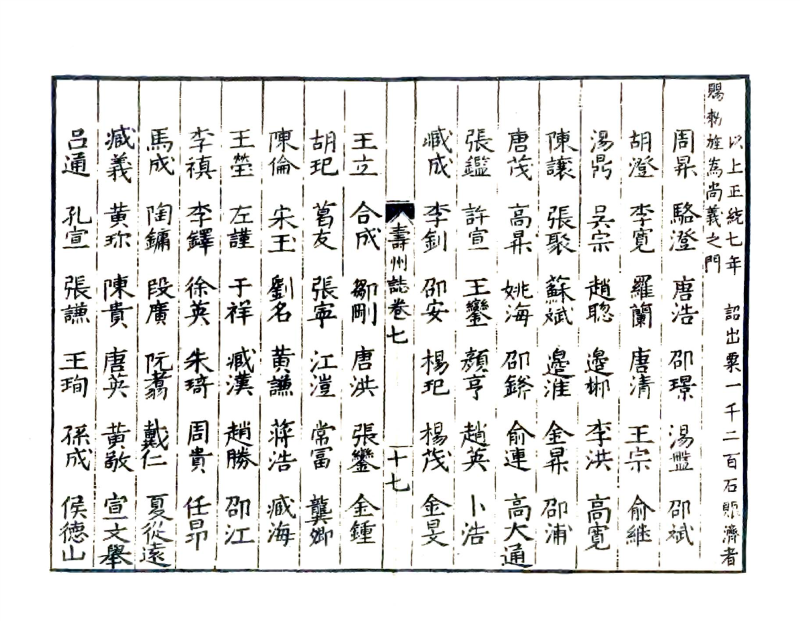 以上正統七年　詔出粟一千二百石賑濟者
賜勑旌為尚義之門
周昇　駱澄　唐浩　邵璟　湯盤　邵斌
胡澄　李寬　羅蘭　唐清　王宗　俞継
湯鼎　吳宗　趙聰　邊郴　李洪　高寬
陳讓　張聚　蘇斌　邊淮　金昇　邵浦
唐茂　高昇　姚海　邵鏳　俞連　高大通
張鑑　許宣　王鑾　顏亨　趙英　卜浩
臧成　李釗　邵安　楊玘　楊茂　金旻
壽州誌卷七　十七
王立　合成　鄒剛　唐洪　張鑾　金鍾
胡玘　葛友　張寧　江漄　常冨　龔卿
陳倫　宋玉　劉名　黃謙　蔣浩　臧海
王瑩　左謹　于祥　臧漢　趙勝　邵江
李禛　李鐸　徐英　朱琦　周貴　任昂
馬成　陶鏞　段廣　阮翥　戴仁　夏從遠
臧義　黃珎　陳貴　唐英　黃敬　宣文舉
吕通　孔宣　張謙　王珣　孫成　侯德山